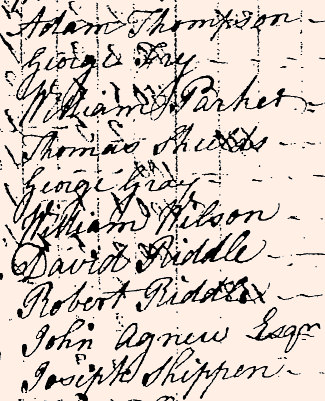 Adam Thompson
George Fry
William Parker
Thomas Shields
George Gray
William Wilson
David Riddle
Robert Riddle
John Agnew Esqr
Joseph Shippen